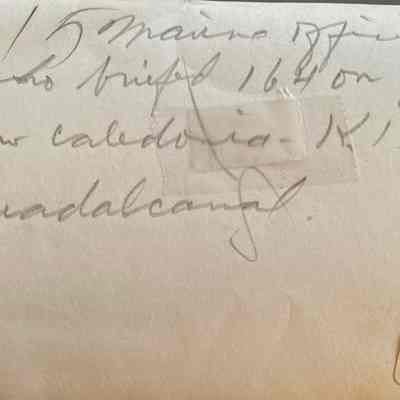 15 Marine offi
ho briefd 164 on
w caledonia - K.I
uadalcanal.